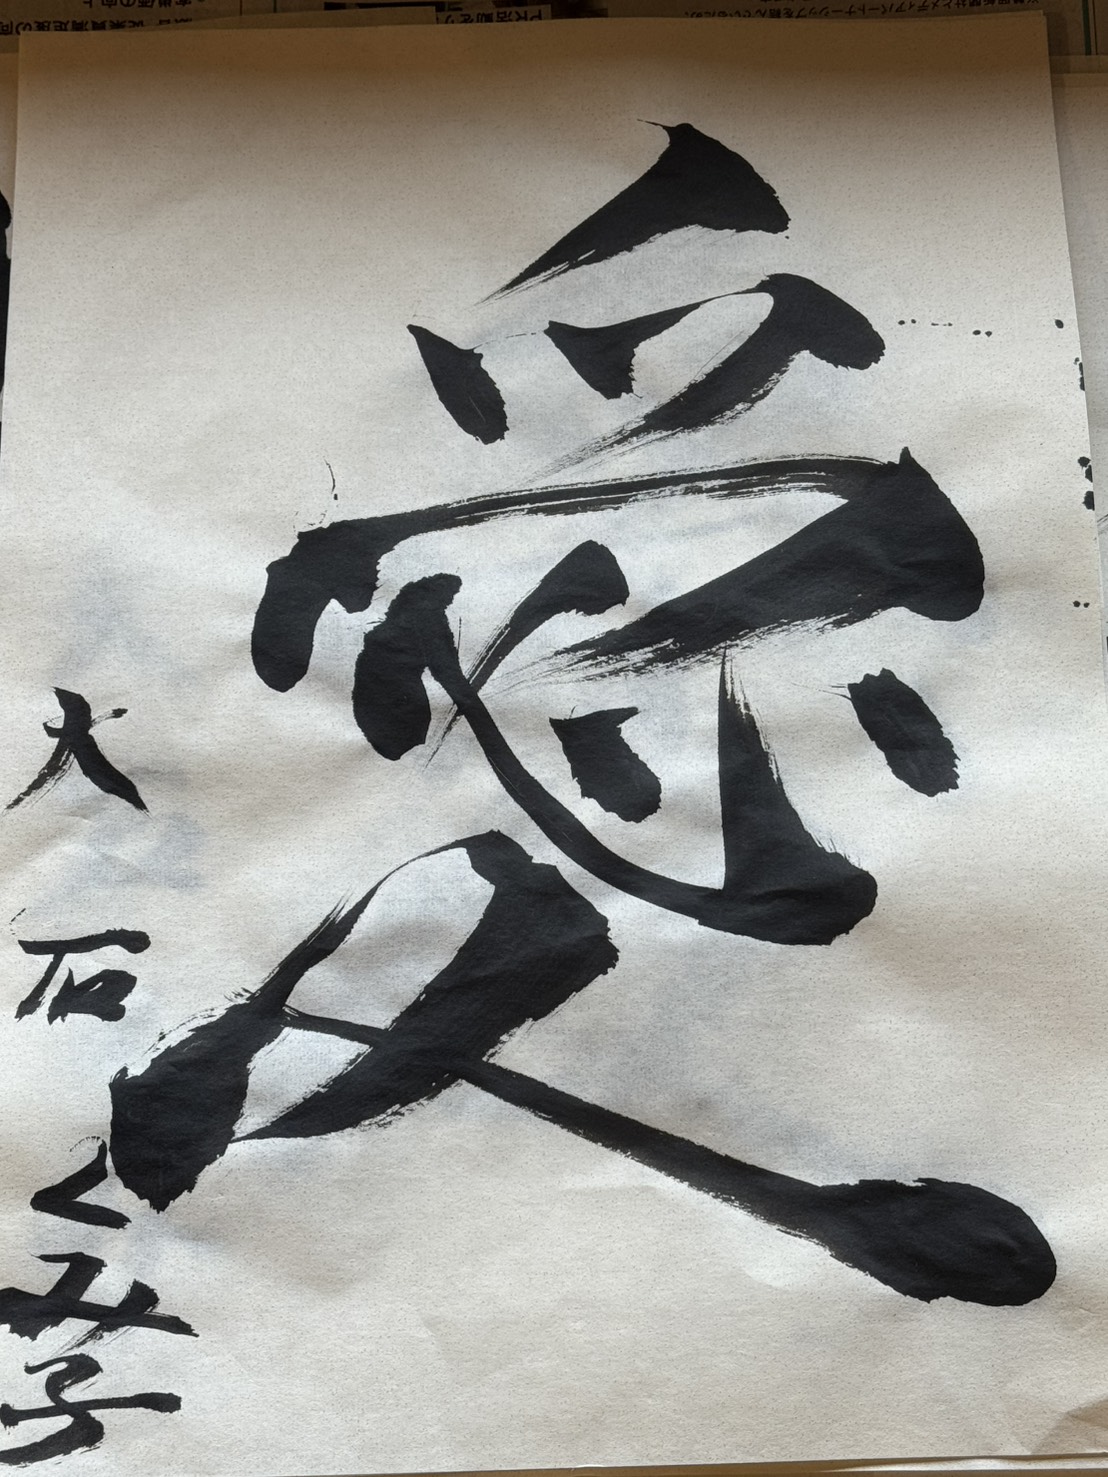 愛
大石くみ子